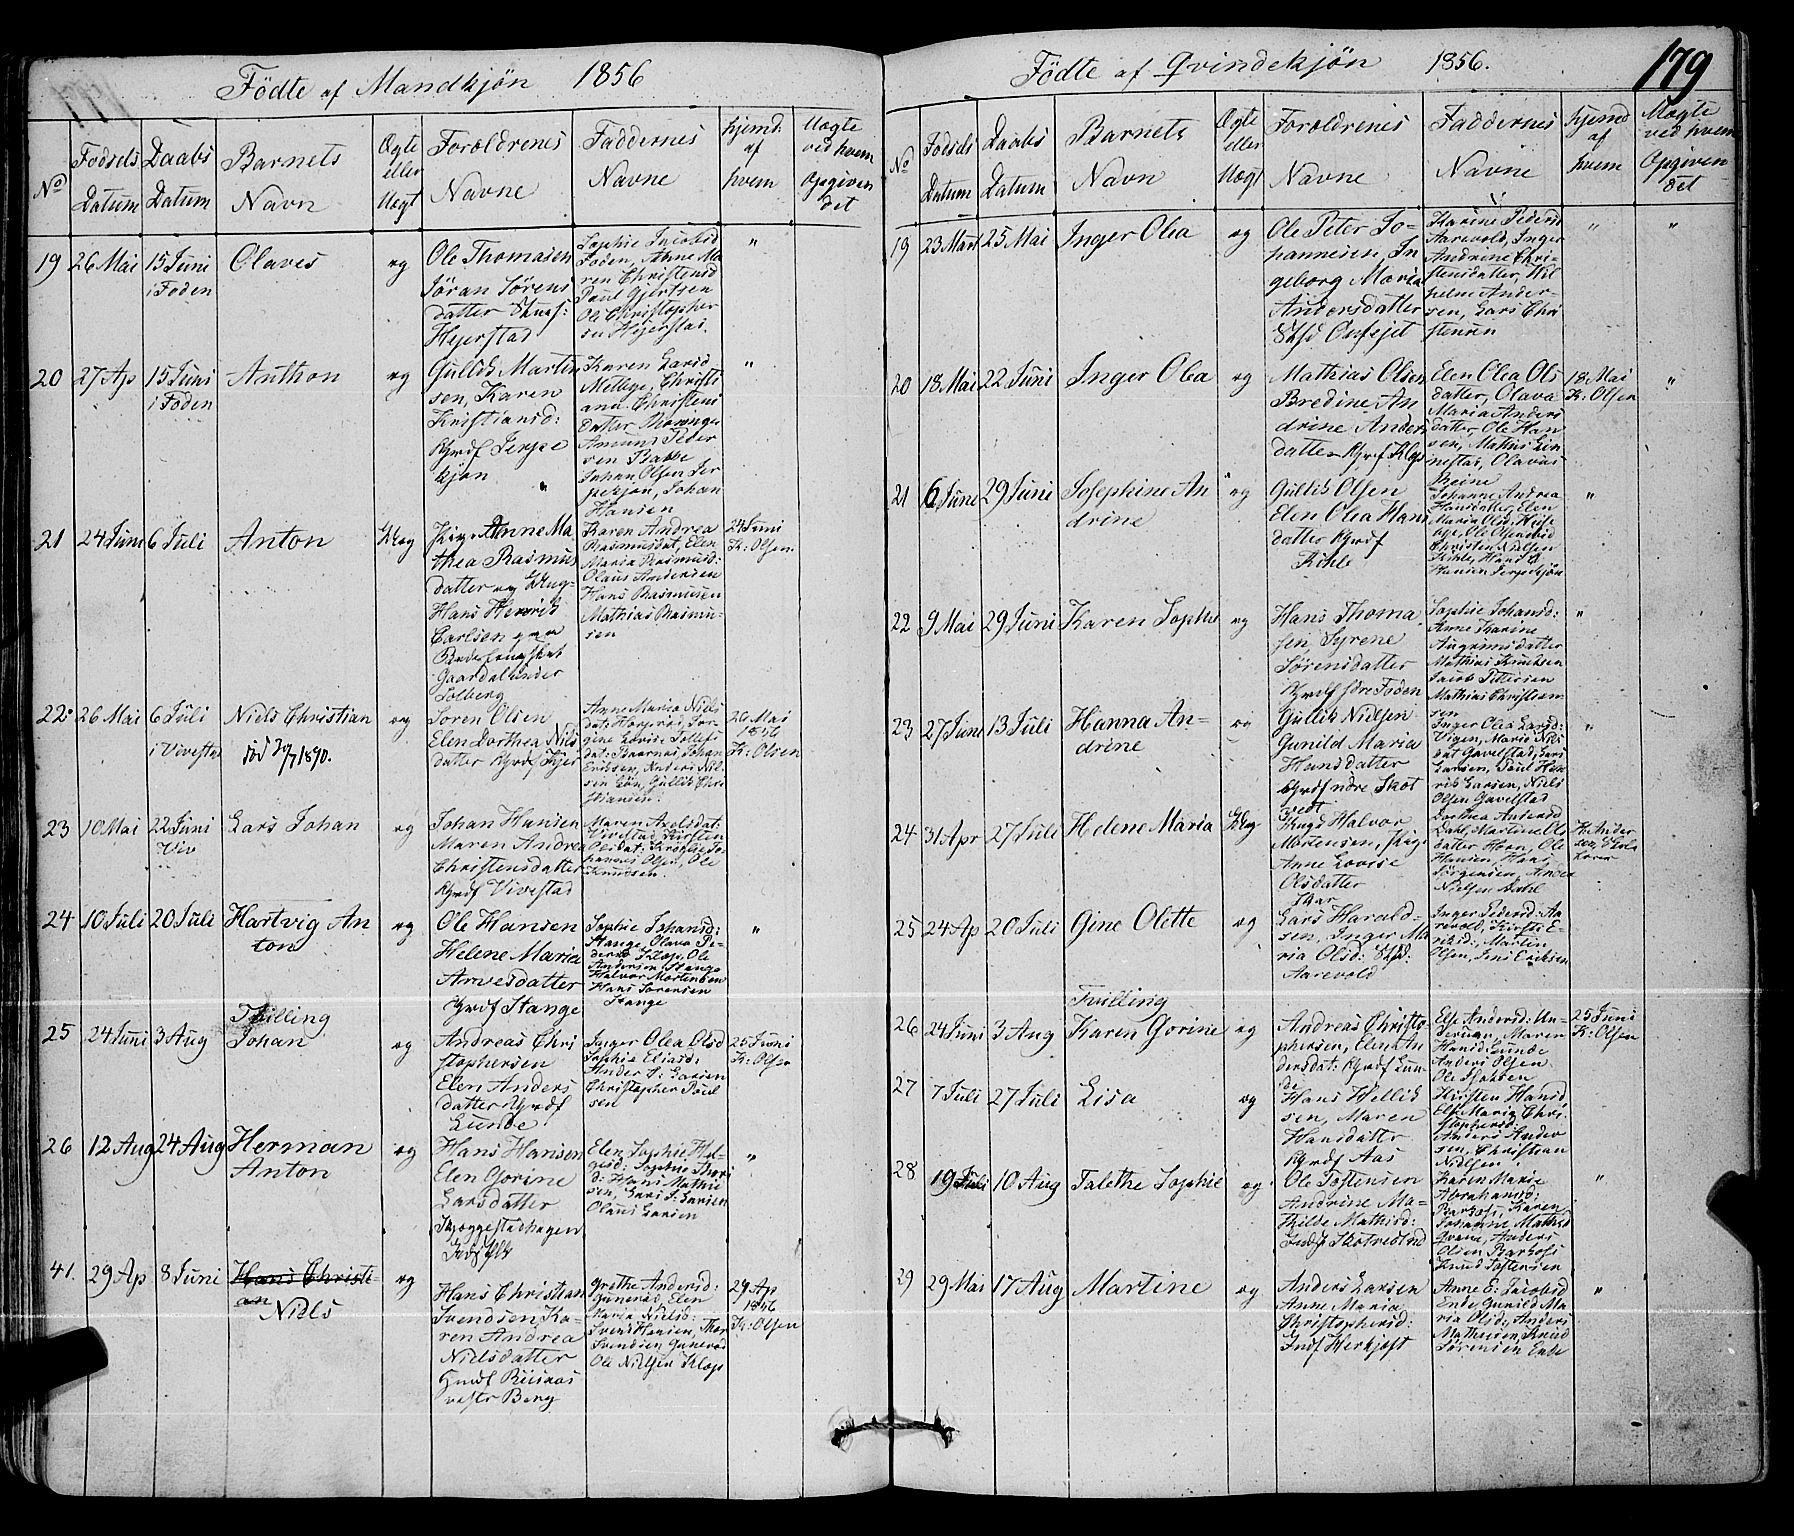 Fødte af Mandkjøn 1856
No
Fødsels Datum
Daabs Datum
Barnets Navn
Ægte eller Uægt
Forældrenes Navne
Faddernes Navne
hjemd: af hvem
Uægte ved hvem Opgiven det
19 26 Mai 15 Juni i Foden
Olaves
æg
Ole Thomasen
Søran Sørens
datter
Hejerstad
Sophie Jacobsd
Foden, Anne Ma
ren Christensd
Paul Gjertsen
Ole Christopher
sen Hejerstad.
"
20 27 Ap 15 Juni i Foden
Anthon
æg
Gullik Martin
sen, Karen
Kristiansd:
Gyrdf Jerpe
kjøn
Karen Larsd
Melbye, Christi
ane Christens
datter
Amund Peder
sen Bakke
Johan Olsen Jer
pekjøn, Johan
Hansen
"
21 24 Juni 6 Juli
Anton
Uæg
Pige Anne Ma
thea Rasmus
datter og Ung-
Hans Henrik
Carlsen
Gaardal under
Solberg
Karen Andrea
Rasmusdat, Elen
Maria Rasmusd:
Olaus Andersen
Hans Rasmusen
Mathias Rasmu-
sen
24 Juni
K: Olsen
22 26 Mai 6 Juli i Vivestad
Niels Christian
død 20/7 1890.
æg
Søren Olsen
Elen Dorthea Nils
datter Gyrdf Kjær
Anne Maria Niels
dat:
gine Lovise Tollefs
dat: Baarnes Johan
Eriksen, Anders Nil-
sen Løn, Gullik Chri
stiansen.
26 Mai
1856
K: Olsen
23 10 Mai 22 Juni Viv
Lars Johan
æg
Johan Hansen
Maren Andrea
Christensdatter
Gyrdf Vivestad
Maren Axelsdat:
Vivestad, Kirsten
Olsdat:
hannes Olsen, Ole
Knudsen.
24 10 Juli 20 Juli
Hartvig An
ton
æg
Ole Hansen
Helene Maria
Arnesdatter
Gyrdf Stange
Sophie Johansd:
Stange, Olava Pe-
dersd Klop, Ole
Andersen Stange
Halvor Mortensen
Hans Sørensen
Stange
"
25 24 Juni 3 Aug
Tvilling
Johan
æg
Andreas Chri
stophersen
Elen Anders
datter Gyrdf
Lunde
Inger Olea Olsd
Sophie Eliasd:
Ander S: Larsen
Christopher Paul
sen
25 Juni
K: Olsen
26 12 Aug 24 Aug
Herman
Anton
æg
Hans Hansen
Elen Gorine
Larsdatter
Skjeggestadhagen
Elen Sophie Hel-
gesd: Sophie Thors
d: Hans Mathi
sen, Lars S: Larsen
Olaus Larsen
"
41. 29 Ap 8 Juni
Hans Christi-
an
Niels
æg
Hans Christian
Svendsen, Ka-
ren Andrea
Nielsdatter
vestr Berg
Grethe Andersd:
Gunerød, Elen
Maria Nielsd:
Svend Hansen, Thor
Svendsen Gunerød
Ole Nielsen Klop
29 Ap
1856
K: Olsen
Fødte af Qvindekjøn 1856.
179
No
Fødsels Datum
Daabs Datum
Barnets Navn
Ægte eller Uægt
Forældrenes Navne
Faddernes Navne
hjemd af hvem
Uægte ved hvem Opgiven det
19 23 Marts 25 Mai
Inger Olea
æg
Ole Peter Jo-
hannesen, In
geborg Maria
Andersdatter
Karine Pedersd
Aarevold, Inger
Andrine Chri-
stensdatter, Wil
helm Ander-
sen, Lars Chri
stensen
" "
20 18 Mai 22 Juni
Inger Olea
æg
Mathias Olsen
Bredine An
drine Anders
datter Gyrdf Klop
Elen Olea Ols
datter, Olava
Maria Anders
datter, Ole Han
sen, Mathis Lin
nestad, Olavus
Reine
18 Mai
K: Olsen
"
21 6 June 29 Juni
Josephine An
drine
æg
Gullik Olsen
Elen Olea Hans
datter Gyrdf
Kihle
Johanne Andrea
Hansdatter, Elen
Maria Olsd,
Christen Nielsen
Kihle, Hans
Hansen Jerpekjøn
"
22 9 Mai 29 Juni
Karen Sophie
æg
Hans Thoma
sen, Syrene
Sørensdatter
Gyrdf Foden
Sophie Johansd:
Anne Karine
Augrimsdatter
Mathias Knudsen
Jacob Pettersen
Mathias Christian
sen
"
23 27 Juni 13 Juli
Hanna An-
drine
æg
Gullik Nielsen
Gunild Maria
Hansdatter
Gyrdf ndre Skot
vedt
Inger Olea Larsd:
Vigen, Maria Nils
dat Gavelstad, Lars
Larsen, Paul Hen
rik Larsen, Niels
Olsen Gavelstad
"
24 31 Apr 27 Juli
Helene Maria
Uæg
Ungk Halvor
Mortensen, Pige
Anne Lovise
Olsdatter
Skar
Dorthea Andersd
Dahl, Martine Ols
datter Hoen, Ole
Hansen, Hans
Jørgensen, Anders
Nielsen Dahl
K: Ander
sen, Skole
lærer
25 24 Ap 20 Juli
Gine Olette
æg
Lars Harald-
sen, Inger Ma
ria Olsd:
Aarevold
Inger Pedersd: Aa
revold, Kirsti E-
riksd:, Martin
Olsen, Jens Eriksen
26 24 Juni 3 Aug
Tvilling
Karen Gorine
æg
Andreas Christo
phersen, Elen An
dersdat: Gyrdf Lun-
de
Else Andersd: Un-
Maren
Hansd Lunde
Anders Olsen
Ole
25 Juni
K: Olsen
27 7 Juli 27 Juli
Lisa
æg
Hans Hellik
sen, Maren
Hansdatter
Gyrdf Aas
Kirsten Hansd
Else Maria Chri
stophersd:
Anders Ander
sen, Christian
Nielsen
28 19 Juli 10 Aug
Talethe Sophie
æg
Ole Tostensen
Andrine Ma-
thilde Mathisd:
Karen Marie
Abrahamsd:
Karen
Johanne Mathisd
Anders
Olsen
Knud Tostensen
"
29 29 Mai 17 Aug
Martine
æg
Anders Larsen
Anne Maria
Christophersd:
Indf Herkjøst
Anne E: Jacobsd
Ende Gunild Ma
ria Olsd:, Anders
Mathisen, Knud
Sørensen Ende
"